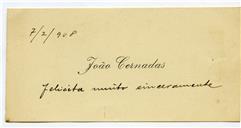 7/2/908
João Cernadas
felicita muito sinceramente